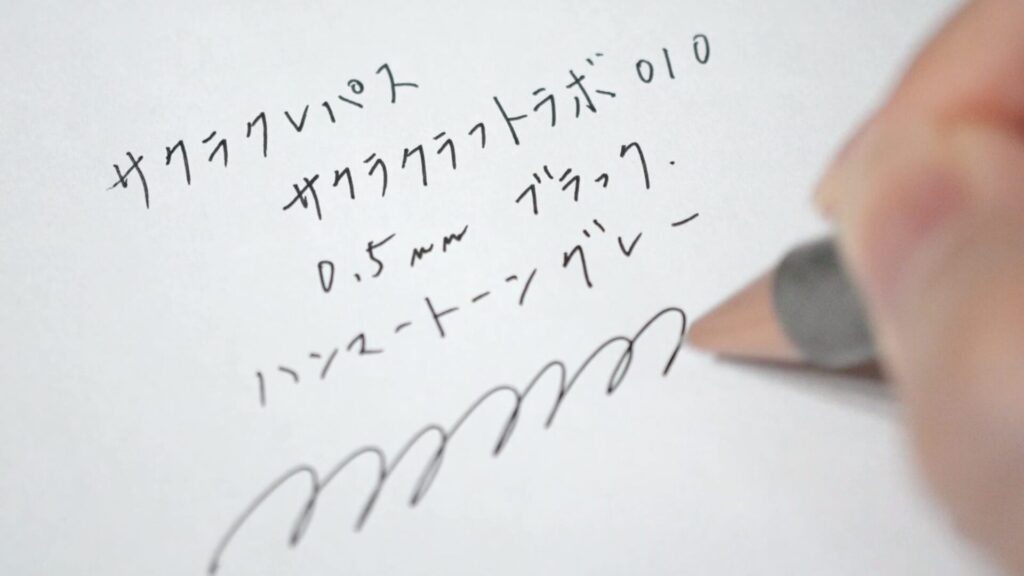 サクラクレパス
サクラクラフトラボ010
0.5mm ブラック.
ハンスートーングレー